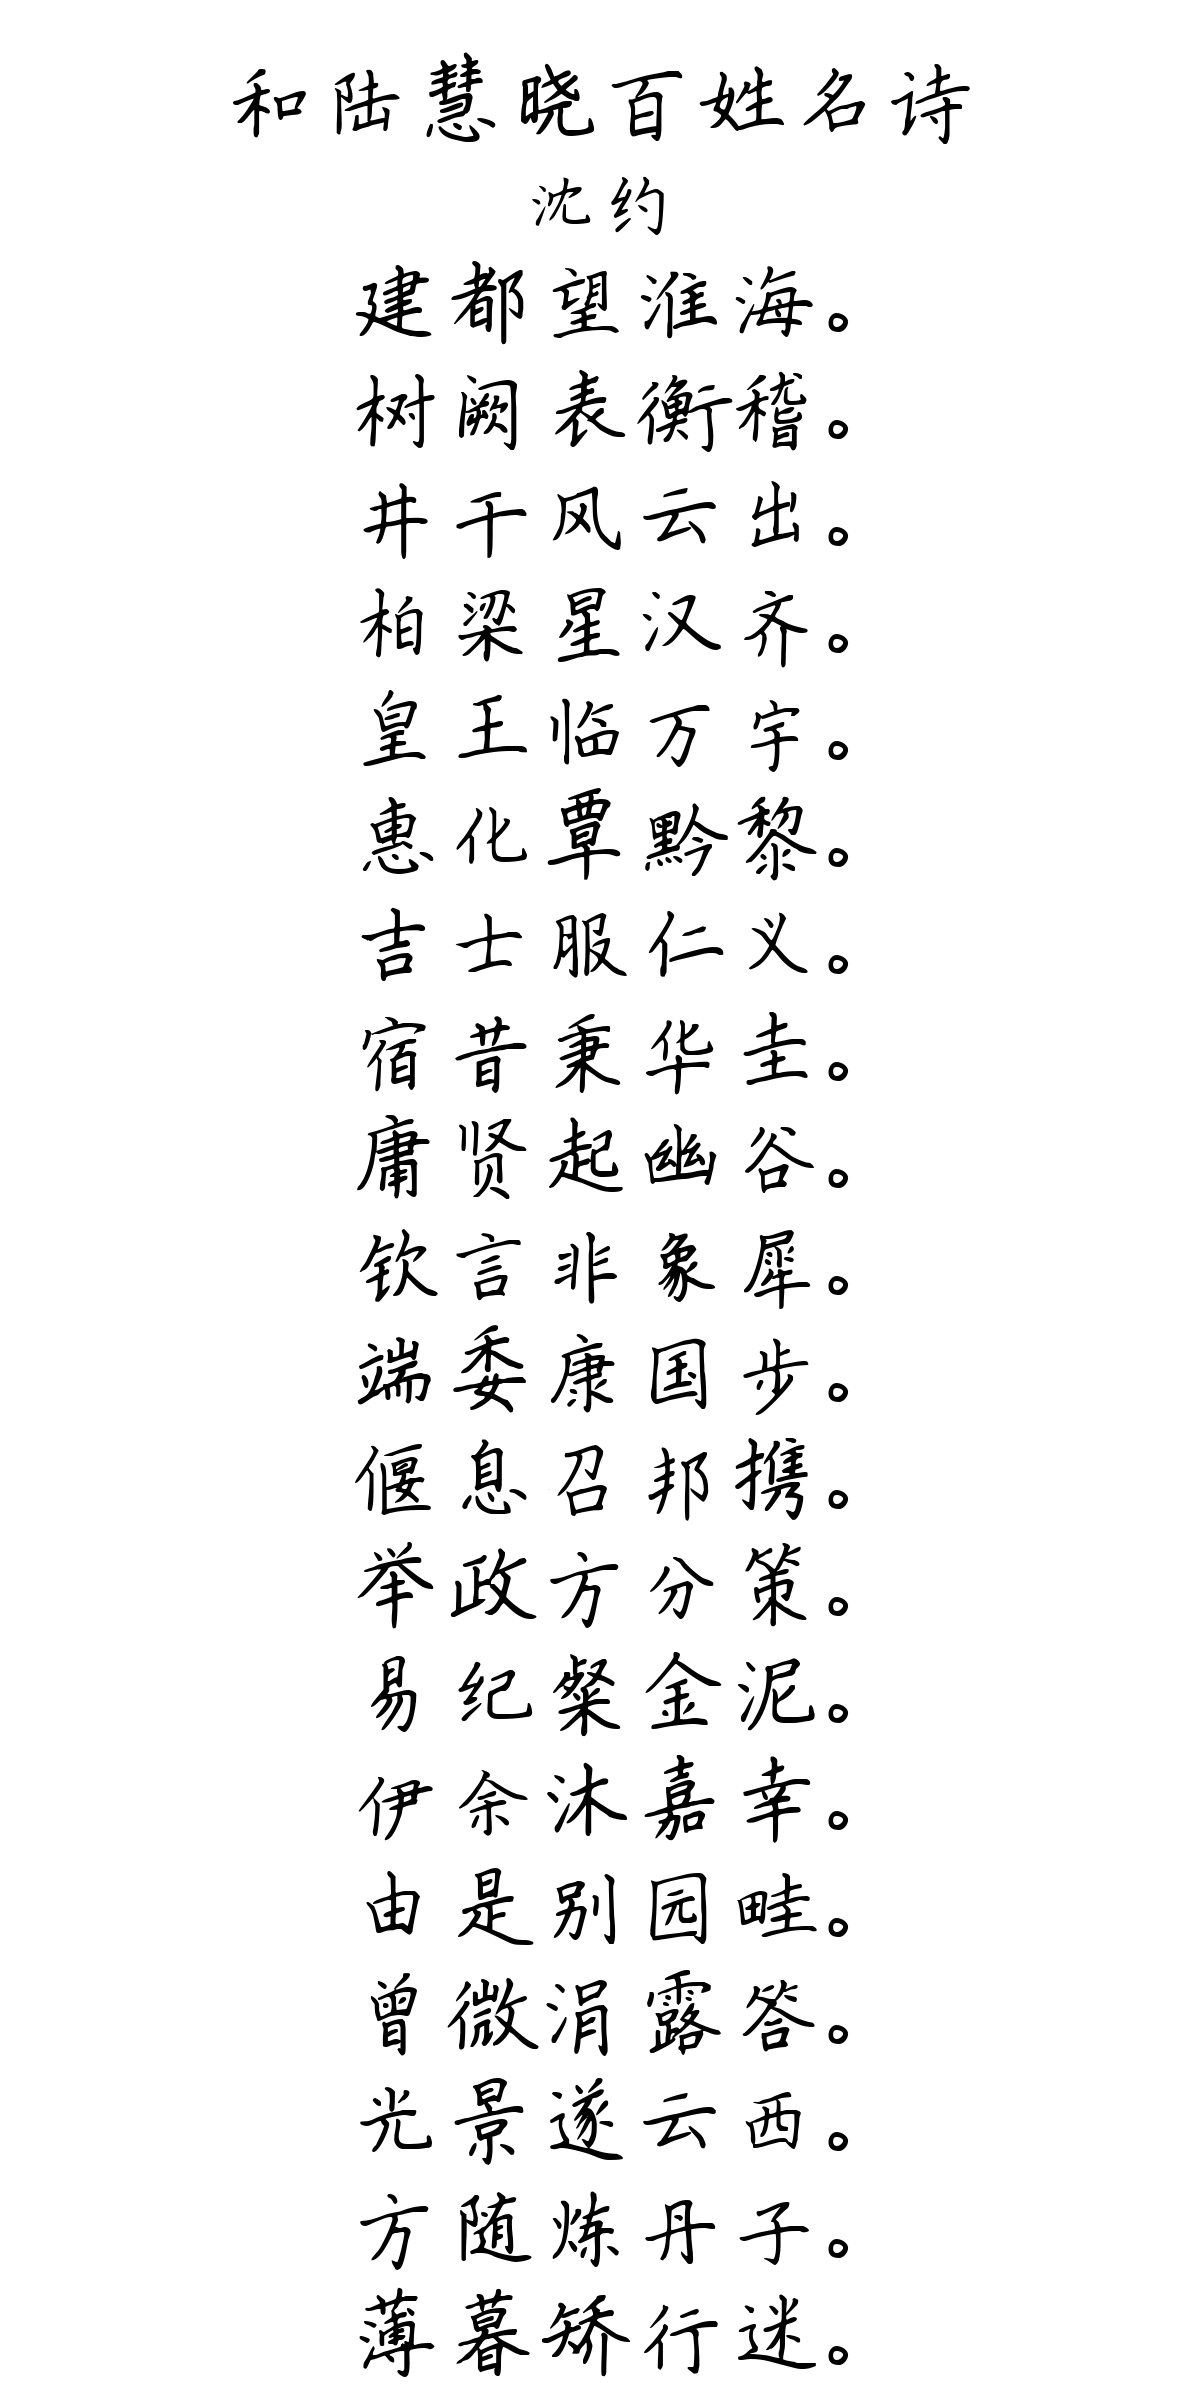 和陆慧晓百姓名诗
沈约
建都望淮海。
树阙表衡稽。
井干风云出。
柏梁星汉齐。
皇王临万宇。
惠化覃黔黎。
吉士服仁义。
宿昔秉华圭。
庸贤起幽谷。
钦言非象犀。
端委康国步。
偃息召邦携。
举政方分策。
易纪粲金泥。
伊余沐嘉幸。
由是别园畦。
曾微涓露答。
光景遂云西。
方随炼丹子。
薄暮矫行迷。